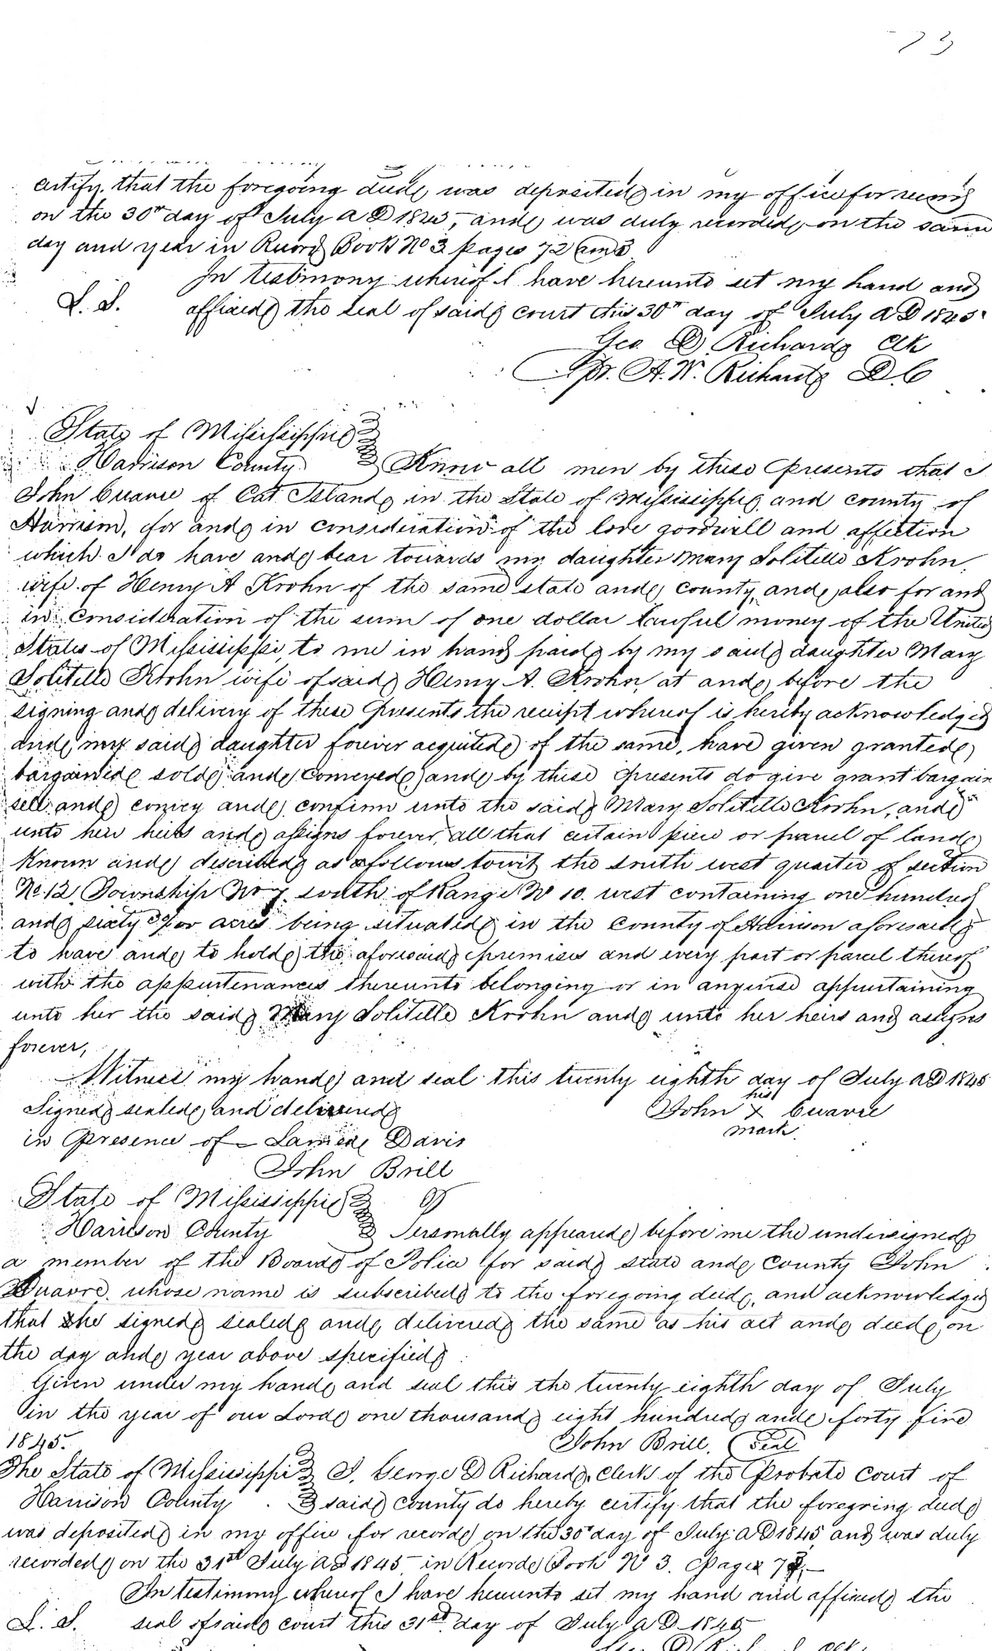 73
certify that the foregoing deed was deposited in my office for record
on the 30th day of July A D 1845, and was duly recorded on the same
day and year in Record Book No 3 pages 72 and 3
In testimony whereof I have hereunto set my hand and
L. S. affixed the seal of said court this 30th day of July A D 1845
Geo D Richard Clk
Pr. A. W. Richard D. C
State of Mississippi
Harrison County Know all men by these Presents that I
John Cuavre of Cat Island in the State of Mississippi and county of
Harrison, for and in consideration of the love goodwill and affection
which I do have and bear towards my daughter Mary Solitelle Krohn
wife of Henry A Krohn of the same state and county, and also for and
in consideration of the sum of one dollar lawful money of the United
States of Mississippi, to me in hand paid by my said daughter Mary
Solitelle Krohn wife of said Henry A. Krohn, at and before the
signing and delivery of these Presents the receipt whereof is hereby acknowledged
and my said daughter forever acquited of the same, have given granted
bargained sold and conveyed and by these Presents do give grant bargain
sell and convey and confirm unto the said Mary Solitelle Krohn, and
unto her heirs and assigns forever, all that certain piece or parcel of land
Known and described as follows, towit, the south west quarter of section
No 12 Township No 7. south of Range No 10. west containing one hundred
and sixty acres being situated in the County of Harrison aforesaid
to have and to hold the aforesaid premises and every part or parcel thereof
with the appurtenances thereunto belonging or in anywise appurtaining
unto her the said Mary Solitelle Krohn and unto her heirs and assigns
forever,
Witness my hand and seal this twenty eighth day of July A D 1845
Signed sealed and delivered John his X mark Cuavre
in Presence of Davis
John Brill
State of Mississippi
Harrison County Personally appeared before me the undersigned
a member of the Board of Police for said state and County John
Cuavre, whose name is subscribed to the foregoing deed, and acknowledged
that he signed sealed and delivered the same as his act and deed, on
the day and year above specified
Given under my hand and seal this the twenty eighth day of July
in the year of our Lord one thousand eight hundred and forty five
1845. John Brill, Seal
The State of Mississippi I. George D Richard, clerk of the Probate court of
Harrison County said county do hereby certify that the foregoing deed
was deposited in my office for record on the 30th day of July A D 1845 and was duly
recorded on the 31st July A D 1845 in Record Book No 3. Page 73
In testimony whereof I have hereunto set my hand and affixed the
L. S. seal of said court this 31st day of July A D 1845